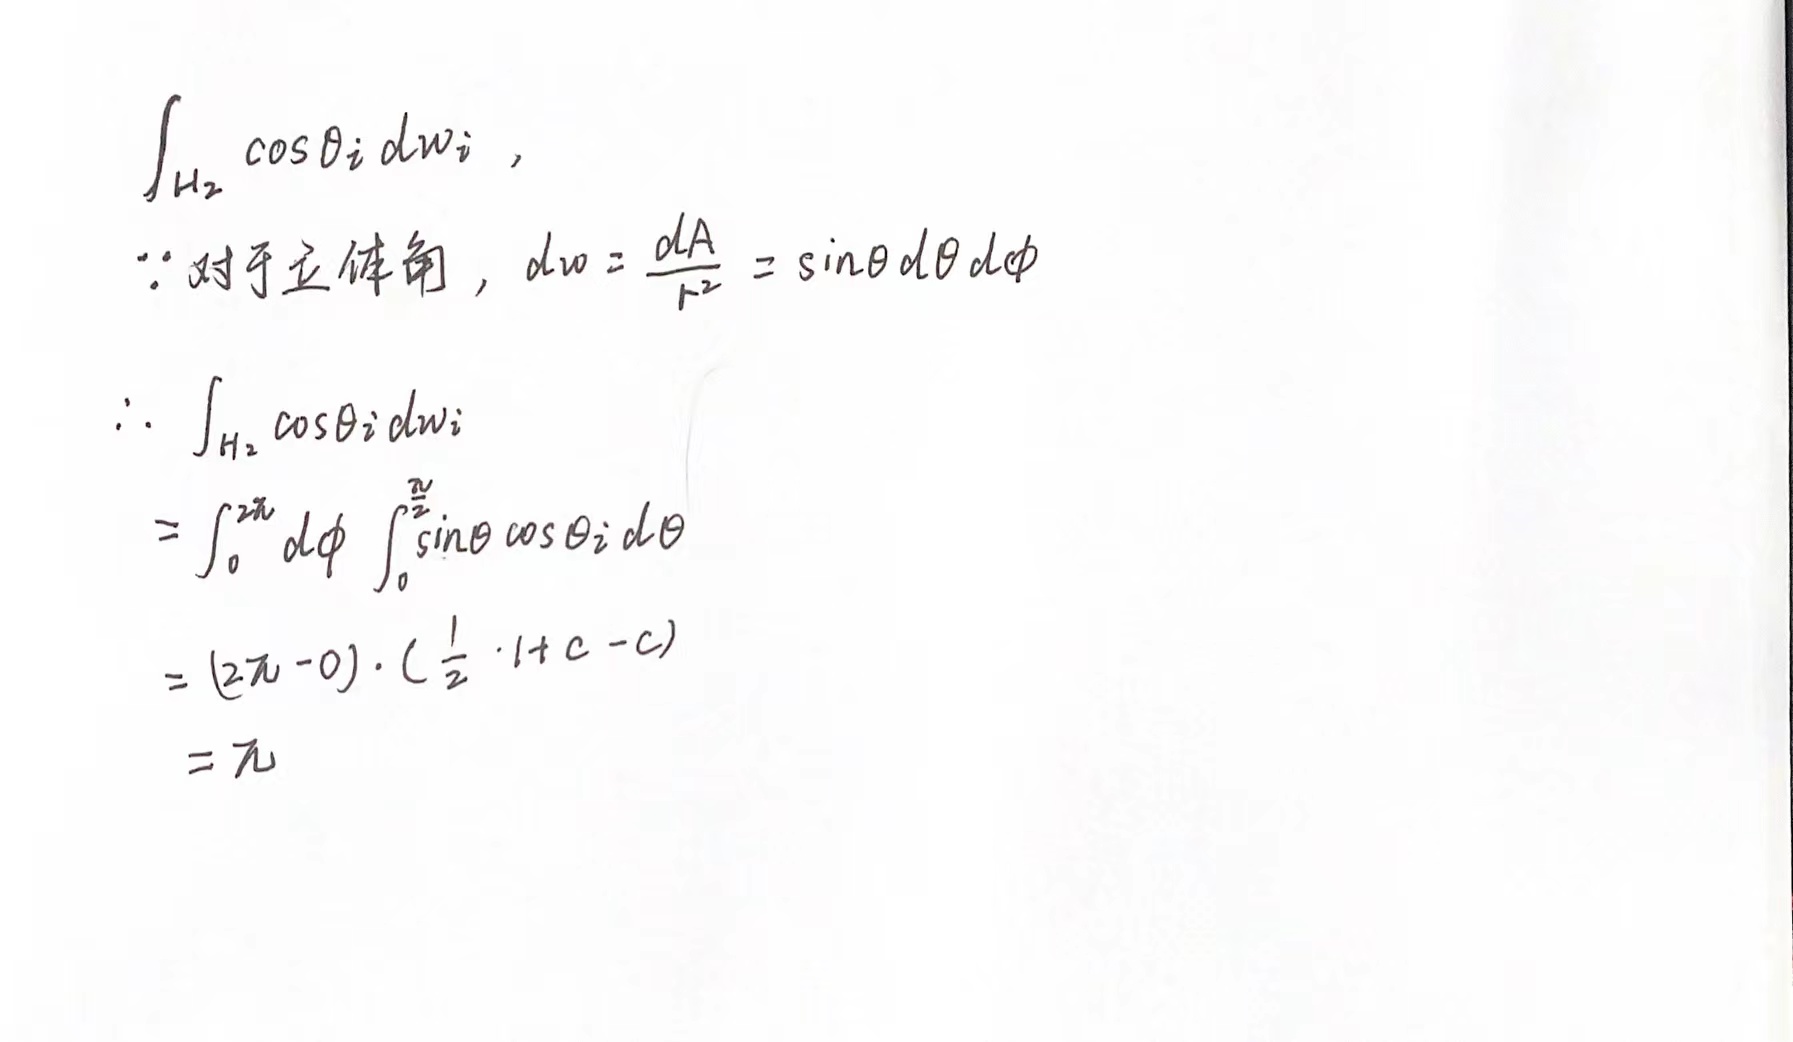 ∫_{H2} cosθi dwi ,
∵ 对于立体角, dw = dA/r² = sinθ dθ dϕ
∴ ∫_{H2} cosθi dwi
= ∫₀^{2π} dϕ ∫₀^{π/2} sinθ cosθi dθ
= (2π - 0) · (1/2 · 1 + C - C)
= π